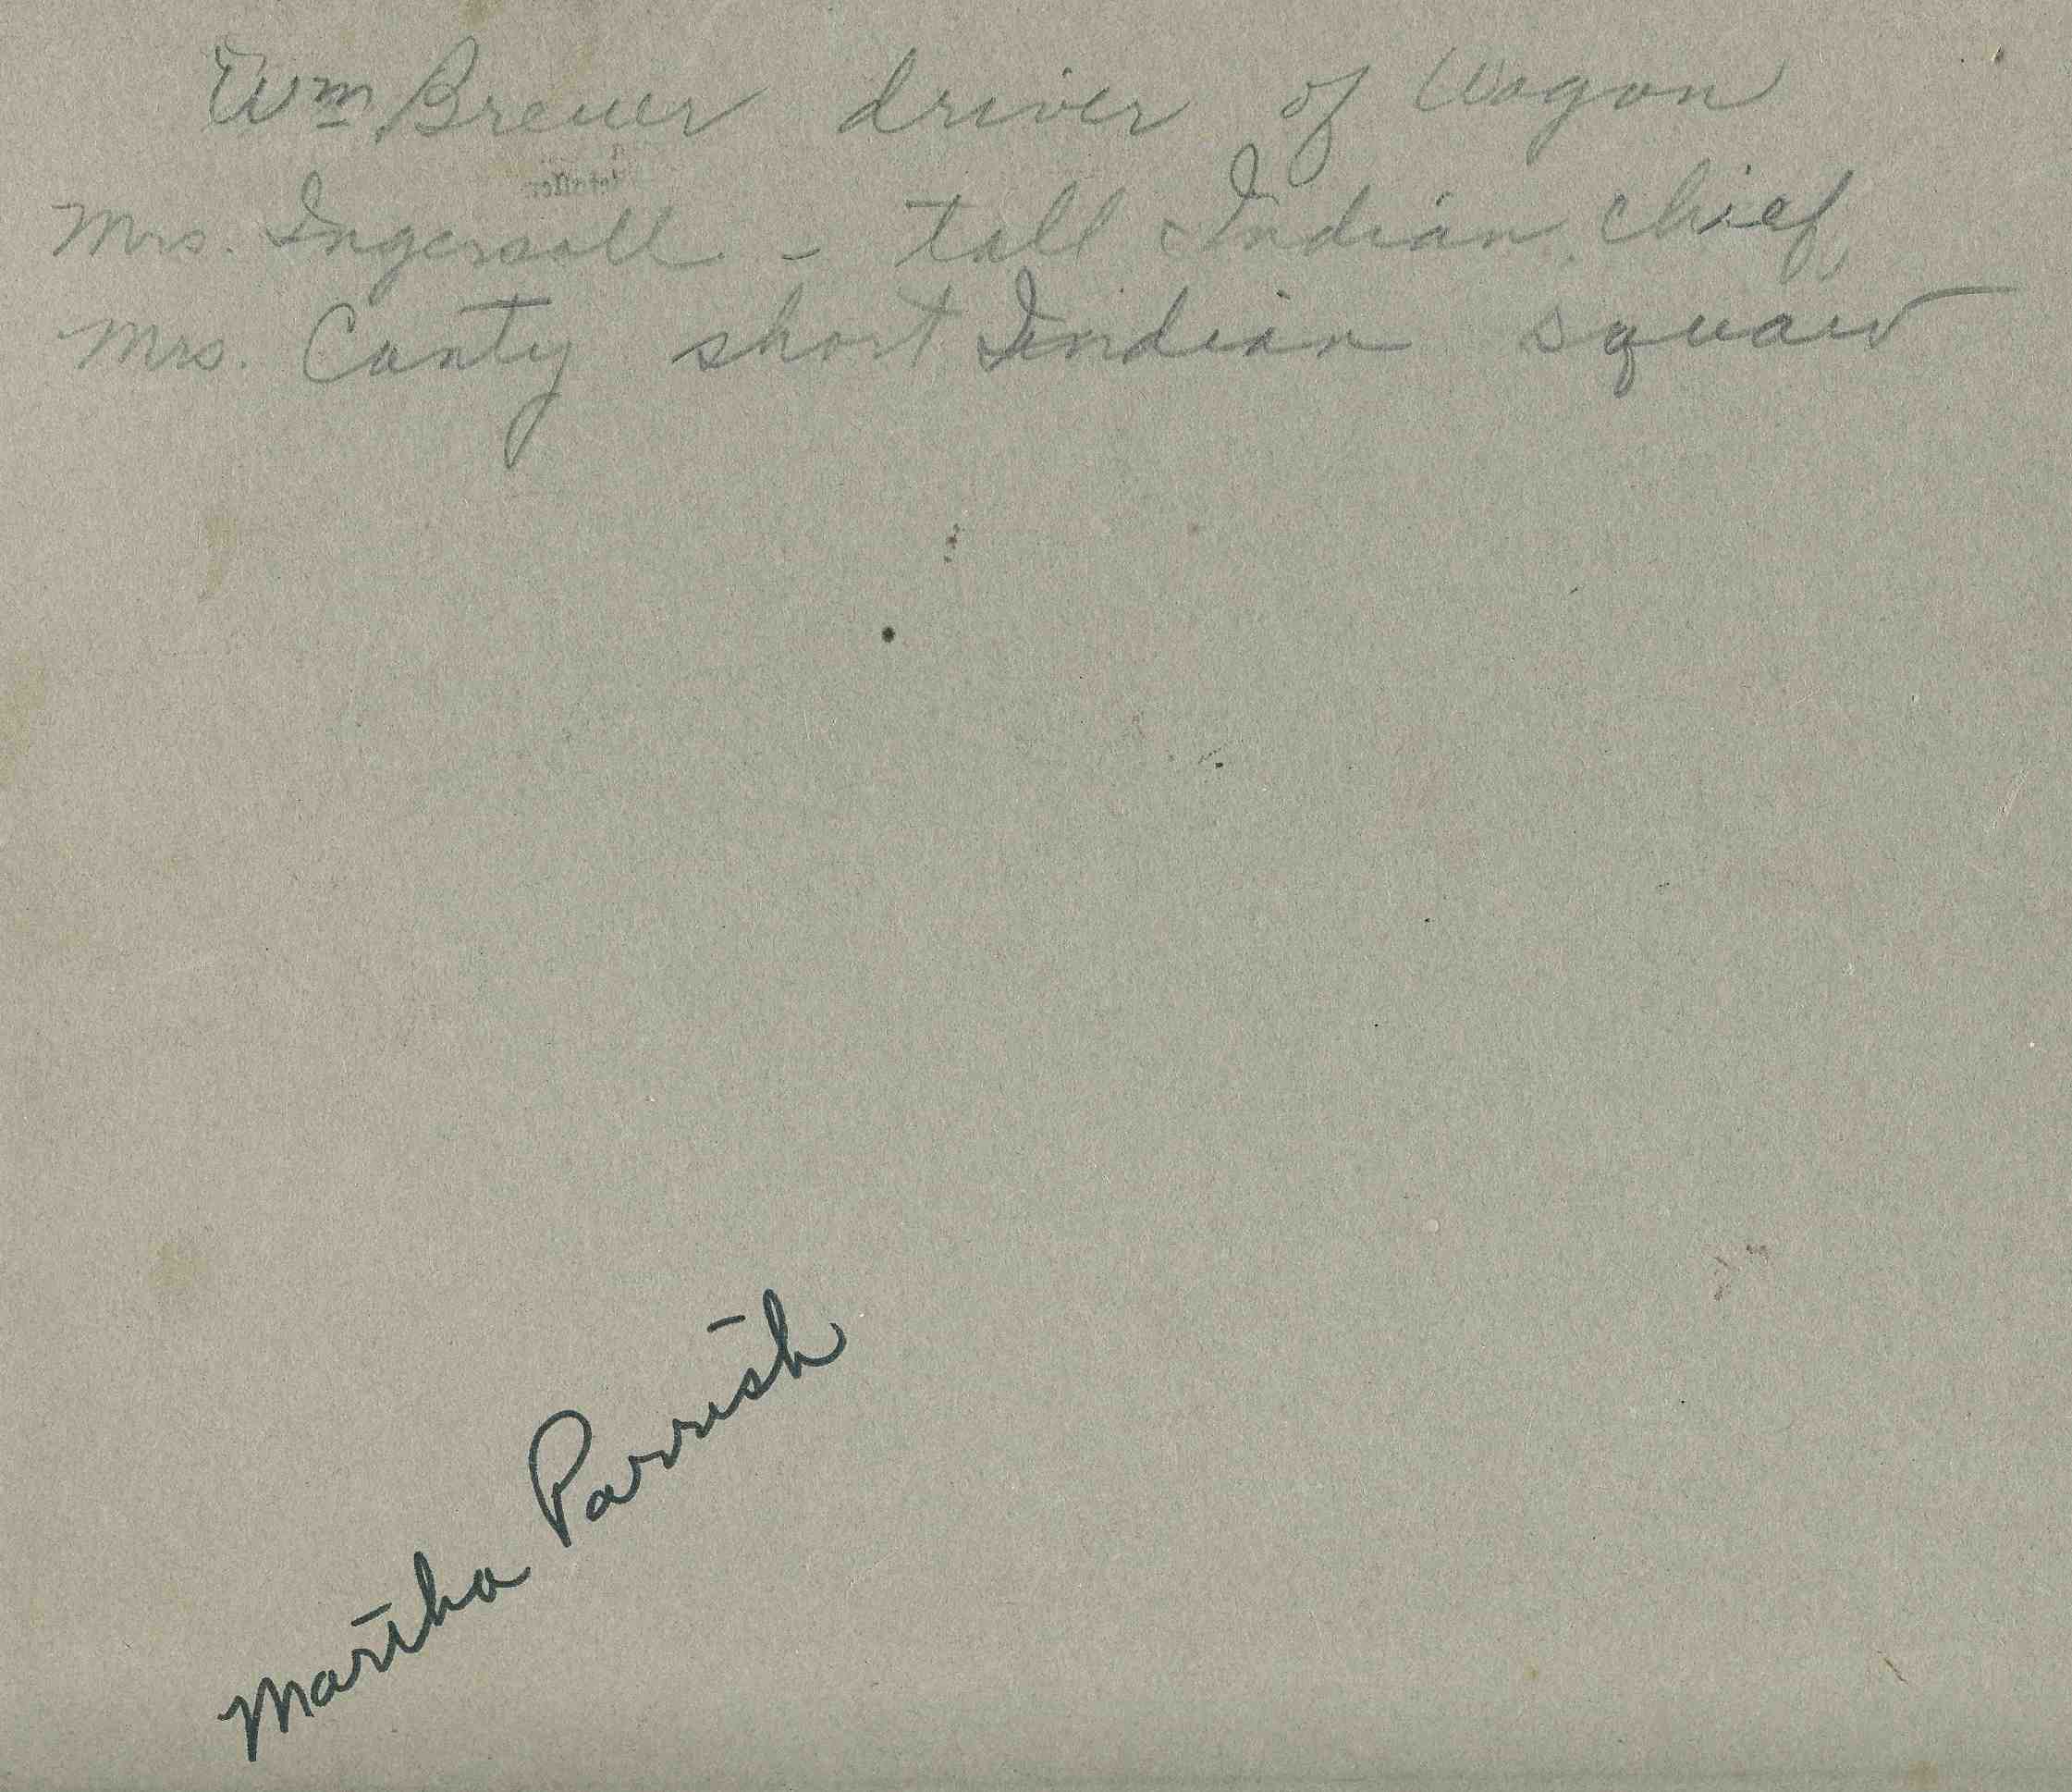 Wm Brewer driver of Wagon
Mrs. Ingersoll - tall Indian chief,
Mrs. Canty short Indian squaw
Martha Parrish